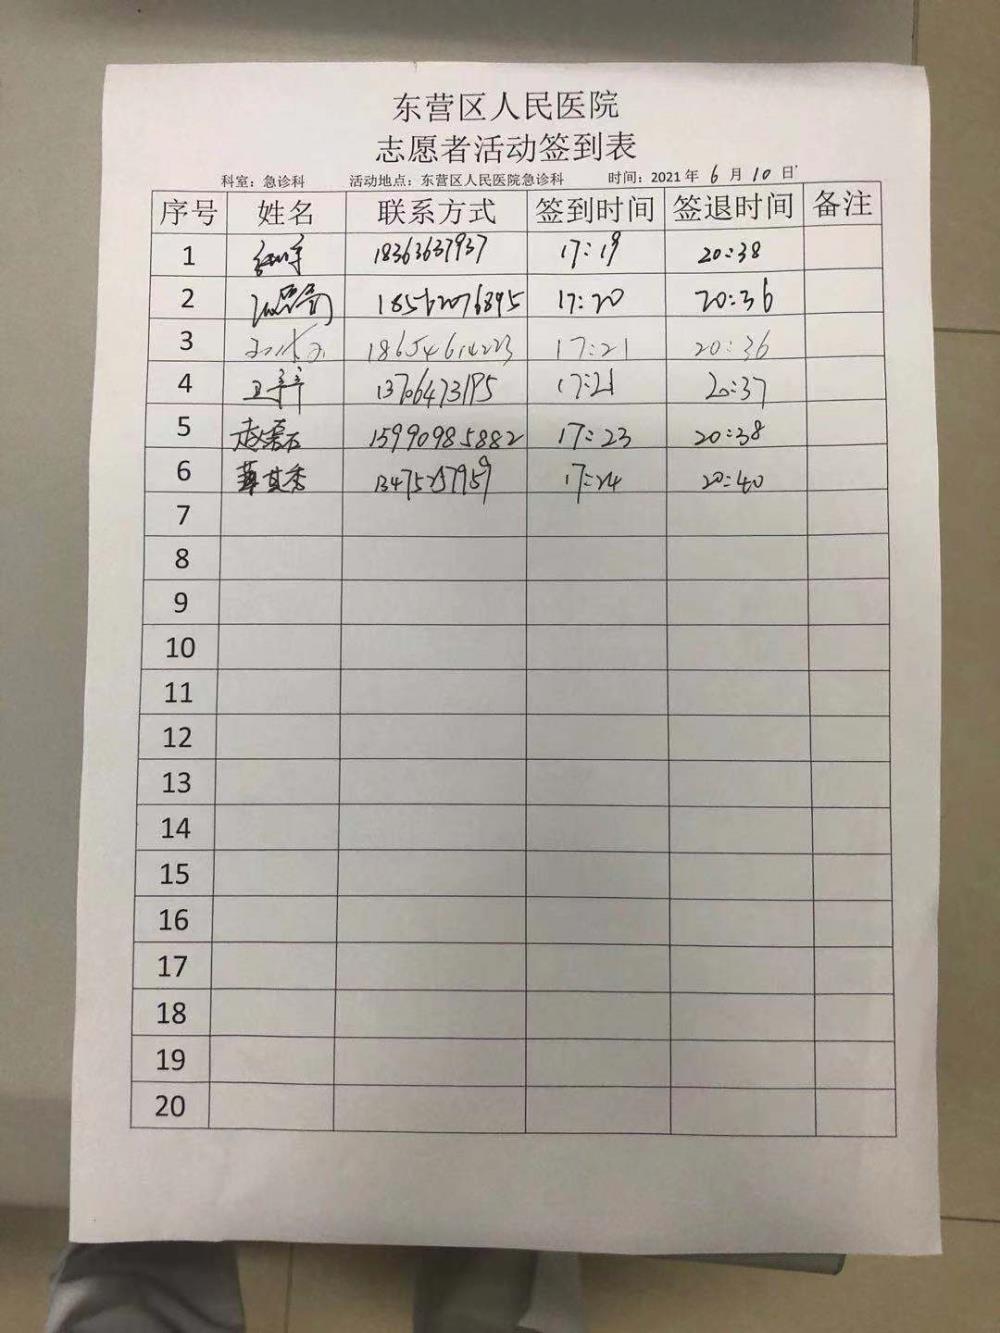 东营区人民医院
志愿者活动签到表
科室：急诊科 活动地点：东营区人民医院急诊科 时间：2021年 6 月 10 日
序号 姓名 联系方式 签到时间 签退时间 备注
1 18363637937 17:19 20:38
2 18562076895 17:20 20:36
3 18654614223 17:21 20:36
4 卫辛辛 13706473195 17:21 20:37
5 赵磊石 15990985882 17:23 20:38
6 薛其秀 13475257959 17:24 20:40
7
8
9
10
11
12
13
14
15
16
17
18
19
20